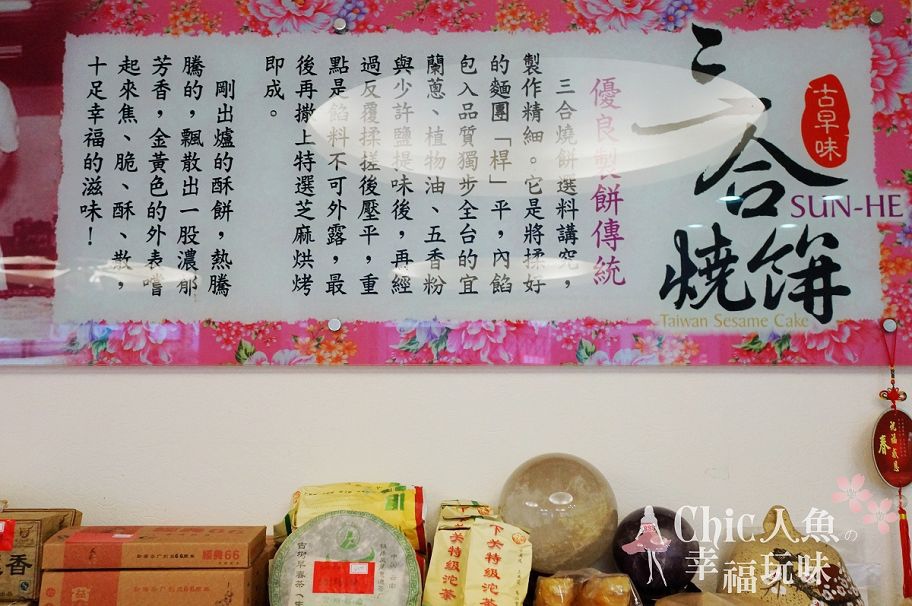 三合燒餅
古早味
SUN-HE
Taiwan Sesame Cake
優良製餅傳統
三合燒餅選料講究，
製作精細。它是將揉好
的麵團「桿」平，內餡
包入品質獨步全台的宜
蘭蔥、植物油、五香粉
與少許鹽提味後，再經
過反覆揉搓後壓平，重
點是餡料不可外露，最
後再撒上特選芝麻烘烤
即成。
剛出爐的酥餅，熱騰
騰的，飄散出一股濃郁
芳香，金黃色的外表嚐
起來焦、脆、酥、散，
十足幸福的滋味！
春
香
經典66
古樹早春茶
下关特級沱茶
Chic人魚の
幸福玩味